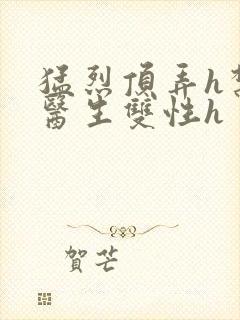 猛烈頂弄h
醫生雙性h
賀芒